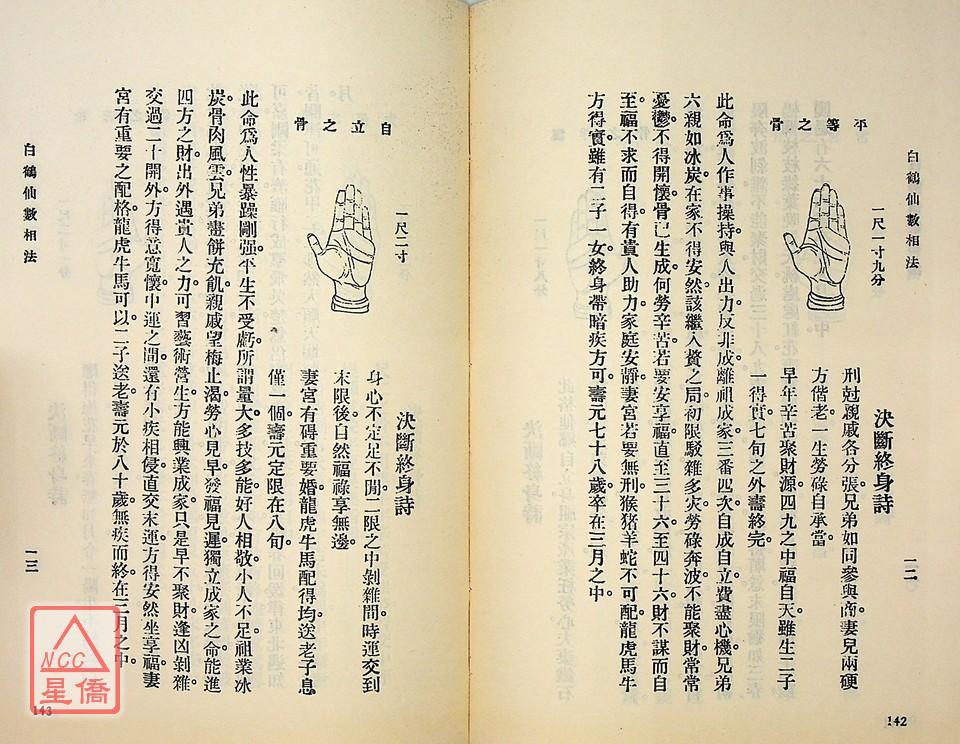 白鶴仙數相法
一二
142
平等之骨
一尺一寸九分
決斷終身詩
刑尅親戚各分張兄弟如同參與商妻兒兩硬
方偕老一生勞碌自承當
早年辛苦聚財源四九之中福自天雖生二子
一得實七旬之外壽終完
此命爲人作事操持與人出力反非成離祖成家三番四次自成自立費盡心機兄弟
六親如冰炭在家不得安然該繼入贅之局初限駁雜多灾勞碌奔波不能聚財常常
憂鬱不得開懷骨已生成何勞辛苦若要安享福直至三十六至四十六財不謀而自
至福不求而自得有貴人助力家庭安靜妻宮若要無刑猴猪羊蛇不可配龍虎馬牛
方得實雖有二子一女終身帶暗疾方可壽元七十八歲卒在三月之中
自立之骨
一尺二寸
決斷終身詩
身心不定足不閒一限之中剝雜間時運交到
末限後自然福祿享無邊
妻宮有碍重要婚龍虎牛馬配得均送老子息
僅一個壽元定限在八旬
此命爲人性暴躁剛强平生不受虧所謂量大多技多能好人相敬小人不足祖業冰
炭骨肉風雲兄弟畫餅充飢親戚望梅止渴勞心見早發福見遲獨立成家之命能進
四方之財出外遇貴人之力可習藝術營生方能興業成家只是早不聚財逢凶剝雜
交過二十開外方得意寬懷中運之間還有小疾相侵直交末運方得安然坐享福妻
宮有重要之配格龍虎牛馬可以二子送老壽元於八十歲無疾而終在三月之中
白鶴仙數相法
一三
143
NCC
星僑